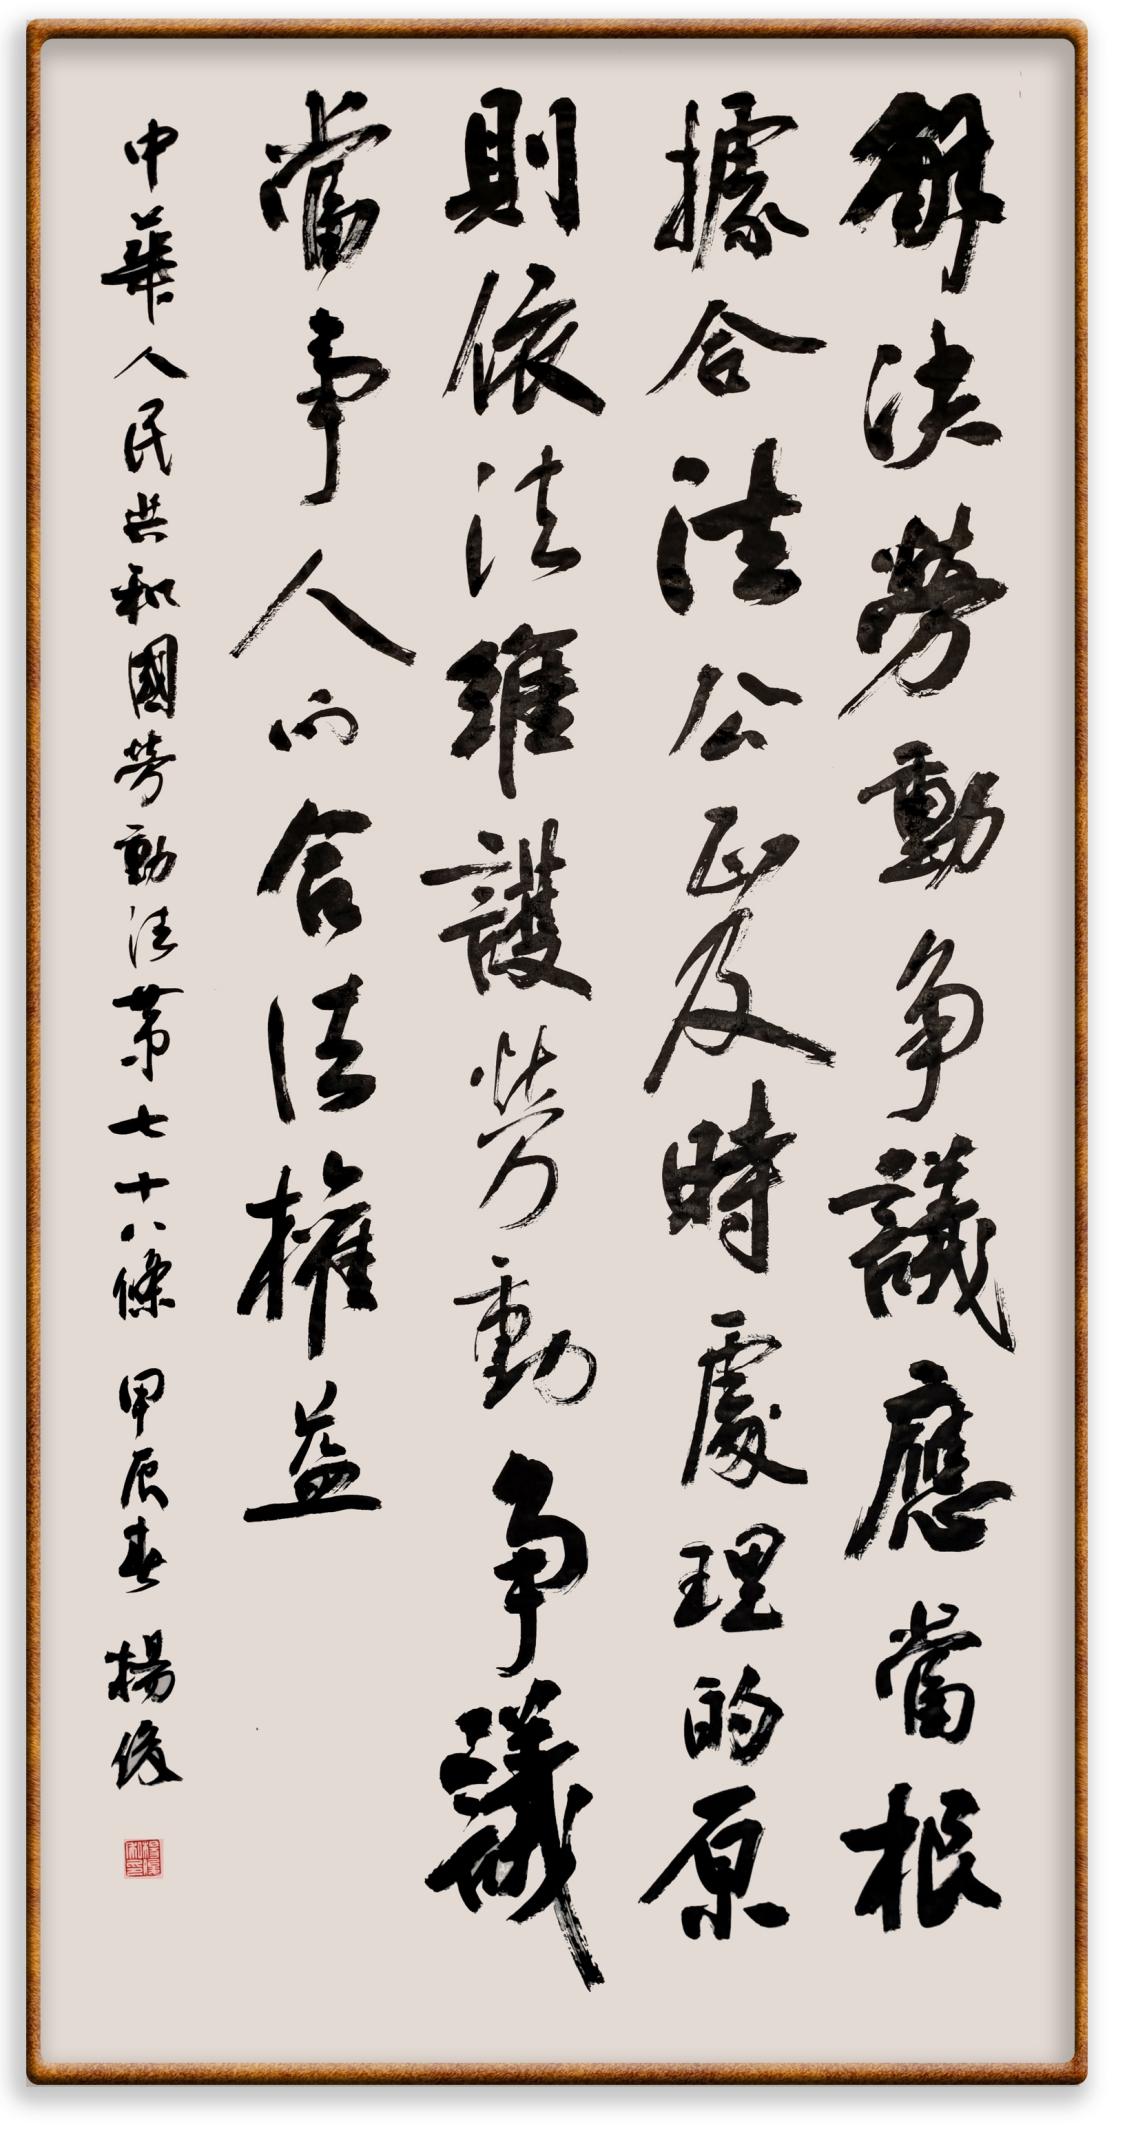 解決勞動争議應當根
據合法公正及時處理的原
則依法維護勞動争議
當事人的合法權益
中華人民共和國勞動法第七十八條 甲辰春 楊俊